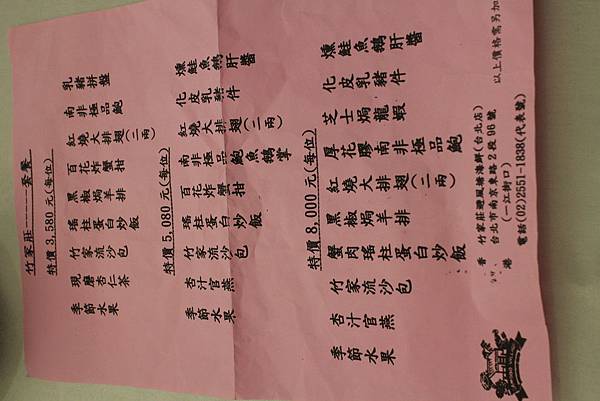 竹家莊——套餐
特價 3,580 元(每位)
乳豬拼盤
南非極品鮑
紅燒大排翅(二兩)
百花炸蟹拑
黑椒焗羊排
瑤柱蛋白炒飯
竹家流沙包
現磨杏仁茶
季節水果
特價 5,080 元(每位)
燻鮭魚鵝肝醬
化皮乳豬件
紅燒大排翅(二兩)
南非極品鮑魚鵝掌
百花炸蟹拑
瑤柱蛋白炒飯
竹家流沙包
杏汁官燕
季節水果
特價 8,000 元(每位)
燻鮭魚鵝肝醬
化皮乳豬件
芝士焗龍蝦
厚花膠南非極品鮑
紅燒大排翅(二兩)
黑椒焗羊排
蟹肉瑤柱蛋白炒飯
竹家流沙包
杏汁官燕
季節水果
以上價格需另加
香港 竹家莊避風塘海鮮(台北店)
台北市南京東路 2 段 98 號
(一江街口)
電話(02)2551-1838(代表號)